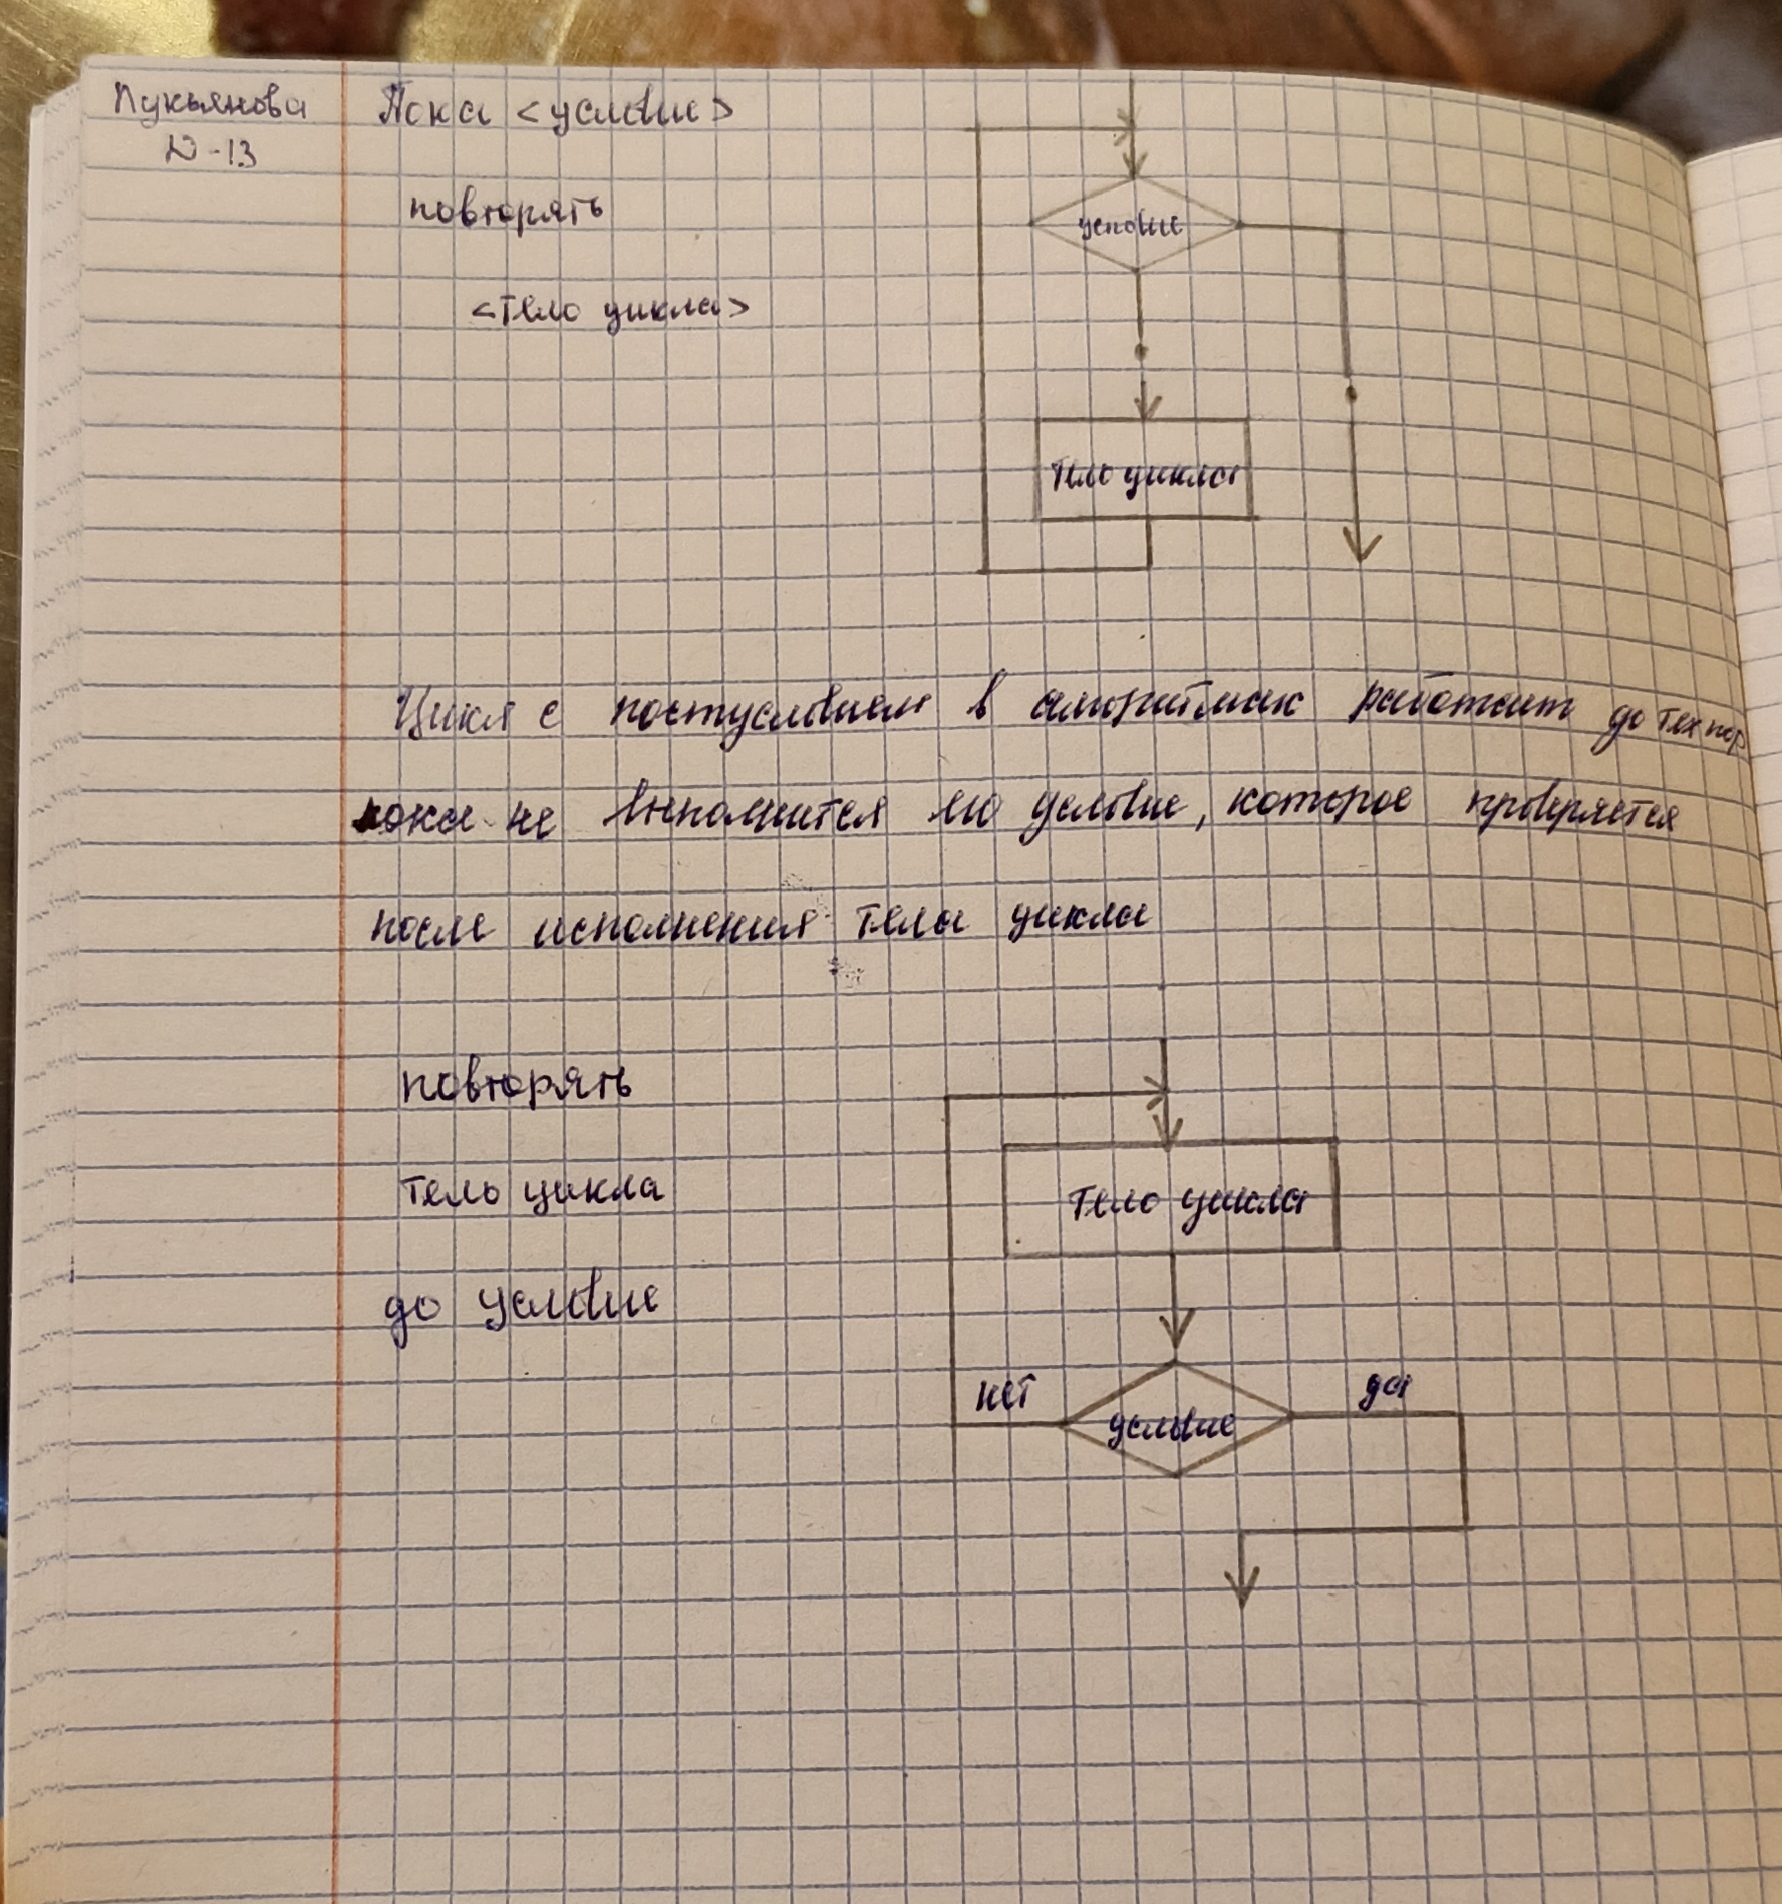 Лукьянова
D-13
Пока <условие>
повторять
<тело цикла>
условие
Тело цикла
Цикл с постусловием в алгоритмах работает до тех пор
пока не выполнится его условие, которое проверяется
после исполнения тела цикла
повторять
тело цикла
до условие
Тело цикла
нет
да
условие